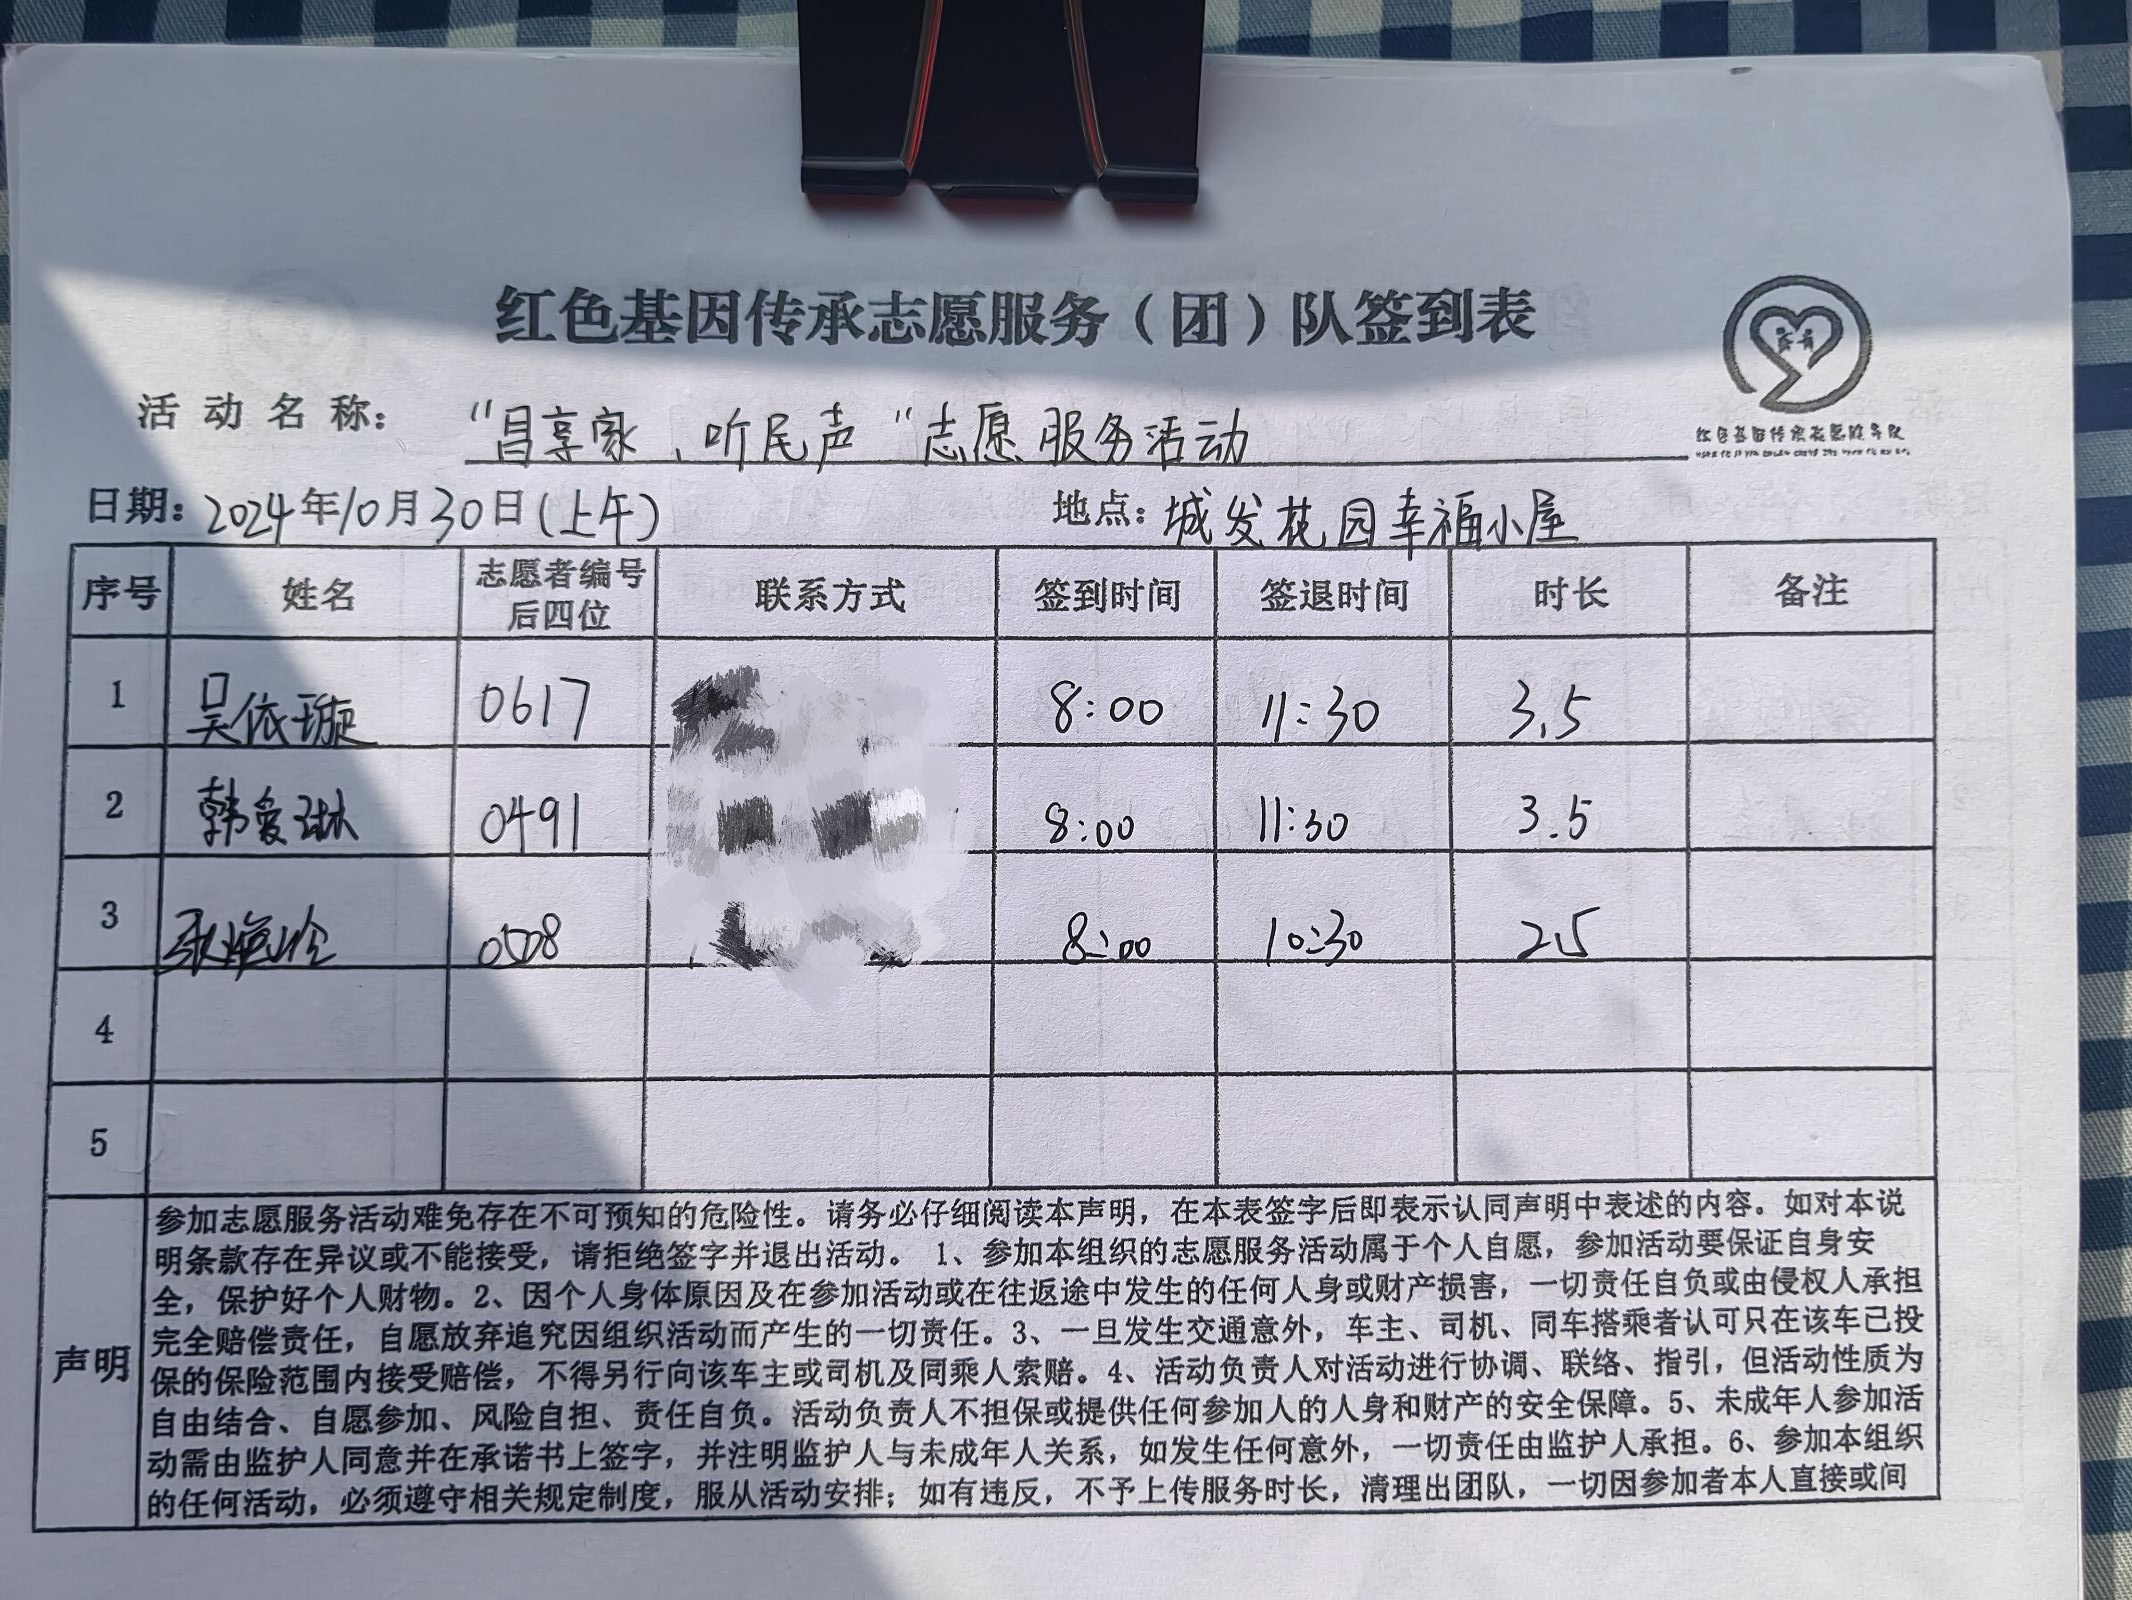 红色基因传承志愿服务（团）队签到表
活动名称： “昌享家、听民声”志愿服务活动
红色基因传承志愿服务队
日期：2024年10月30日(上午) 地点：城发花园幸福小屋
序号 姓名 志愿者编号后四位 联系方式 签到时间 签退时间 时长 备注
1 吴依璇 0617 8:00 11:30 3.5
2 韩爱琳 0491 8:00 11:30 3.5
3 0508 8:00 10:30 2.5
4
5
声明
参加志愿服务活动难免存在不可预知的危险性。请务必仔细阅读本声明，在本表签字后即表示认同声明中表述的内容。如对本说
明条款存在异议或不能接受，请拒绝签字并退出活动。 1、参加本组织的志愿服务活动属于个人自愿，参加活动要保证自身安
全，保护好个人财物。2、因个人身体原因及在参加活动或在往返途中发生的任何人身或财产损害，一切责任自负或由侵权人承担
完全赔偿责任，自愿放弃追究因组织活动而产生的一切责任。3、一旦发生交通意外，车主、司机、同车搭乘者认可只在该车已投
保的保险范围内接受赔偿，不得另行向该车主或司机及同乘人索赔。4、活动负责人对活动进行协调、联络、指引，但活动性质为
自由结合、自愿参加、风险自担、责任自负。活动负责人不担保或提供任何参加人的人身和财产的安全保障。5、未成年人参加活
动需由监护人同意并在承诺书上签字，并注明监护人与未成年人关系，如发生任何意外，一切责任由监护人承担。6、参加本组织
的任何活动，必须遵守相关规定制度，服从活动安排；如有违反，不予上传服务时长，清理出团队，一切因参加者本人直接或间